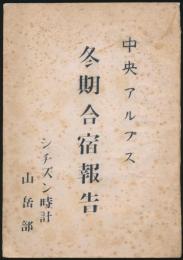 中央アルプス
冬期合宿報告
シチズン時計
山岳部